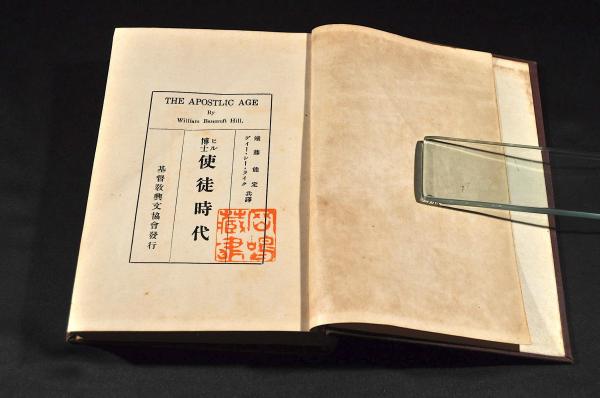 THE APOSTLIC AGE
By
William Bancroft Hill.
藤能定
ディー・シー・ライク
共譯
ヒル
博士
使徒時代
基督敎興文協會發行
鳴
藏書